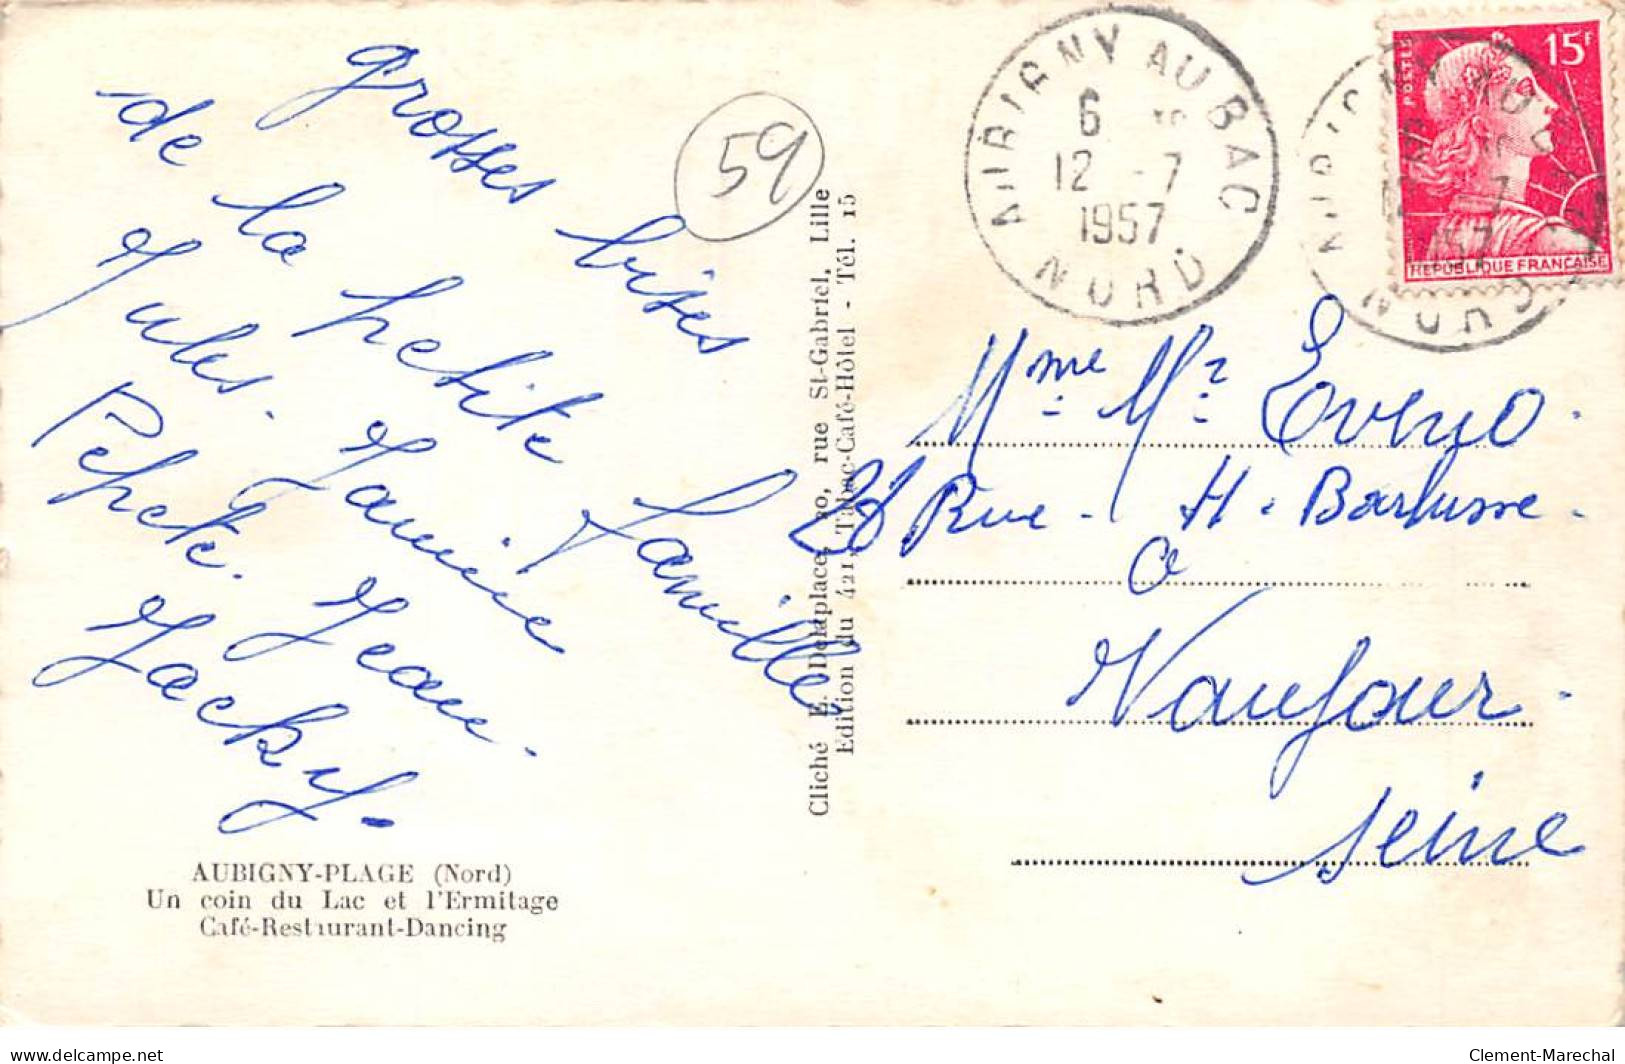 grosses bises
de la petite famille
Jules. Janine
Pépète. Jean.
Jacky.
59
AUBIGNY-PLAGE (Nord)
Un coin du Lac et l'Ermitage
Café-Restaurant-Dancing
Cliché E. Delaplace, 20, rue St-Gabriel, Lille
Edition du 421, Tabac-Café-Hôtel - Tél. 15
AUBIGNY AU BAC
6
12 -7
1957
NORD
POSTES
15F
REPUBLIQUE FRANÇAISE
Mme Mr
28 Rue - H. Barbusse.
a
Vaujour.
Seine
delcampe.net
Clement-Marechal